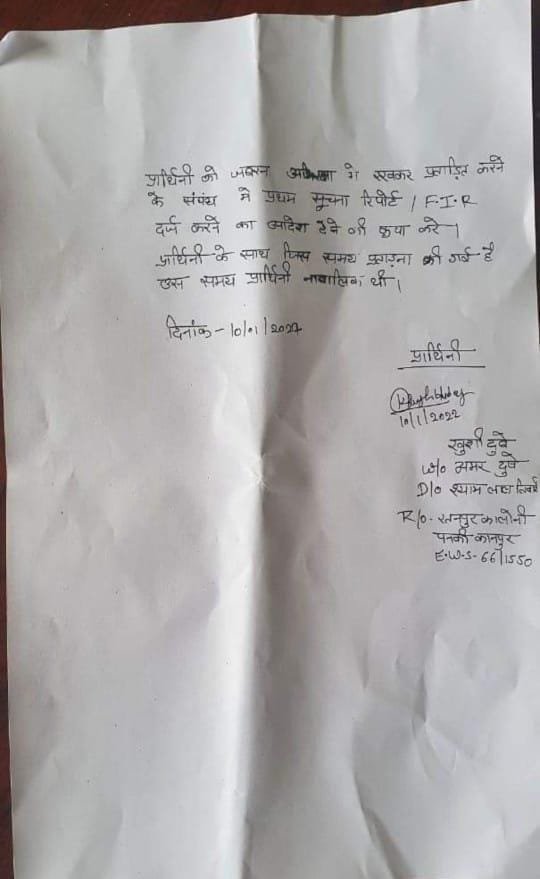 प्रार्थिनी को जबरन में रखकर प्रताड़ित करने
के संबंध में प्रथम सूचना रिपोर्ट / F.I.R
दर्ज करने का आदेश देने की कृपा करे।
प्रार्थिनी के साथ जिस समय प्रताड़ना की गई है
उस समय प्रार्थिनी नाबालिक थी।
दिनांक - 10/01/2022
प्रार्थिनी
10/1/2022
खुशी दुबे
W/o अमर दुबे
D/o श्याम लाल तिवारी
R/o - रतनपुर कालोनी
पनकी कानपुर
E.W.S- 66/1550